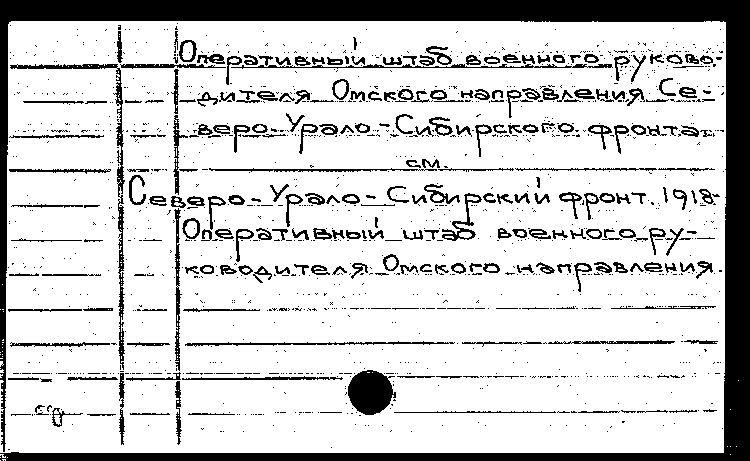 Оперативный штаб военного руково-
дителя Омского направления Се-
веро-Урало-Сибирского фронта.
см.
Северо-Урало-Сибирский фронт. 1918-
Оперативный штаб военного ру-
ководителя Омского направления.